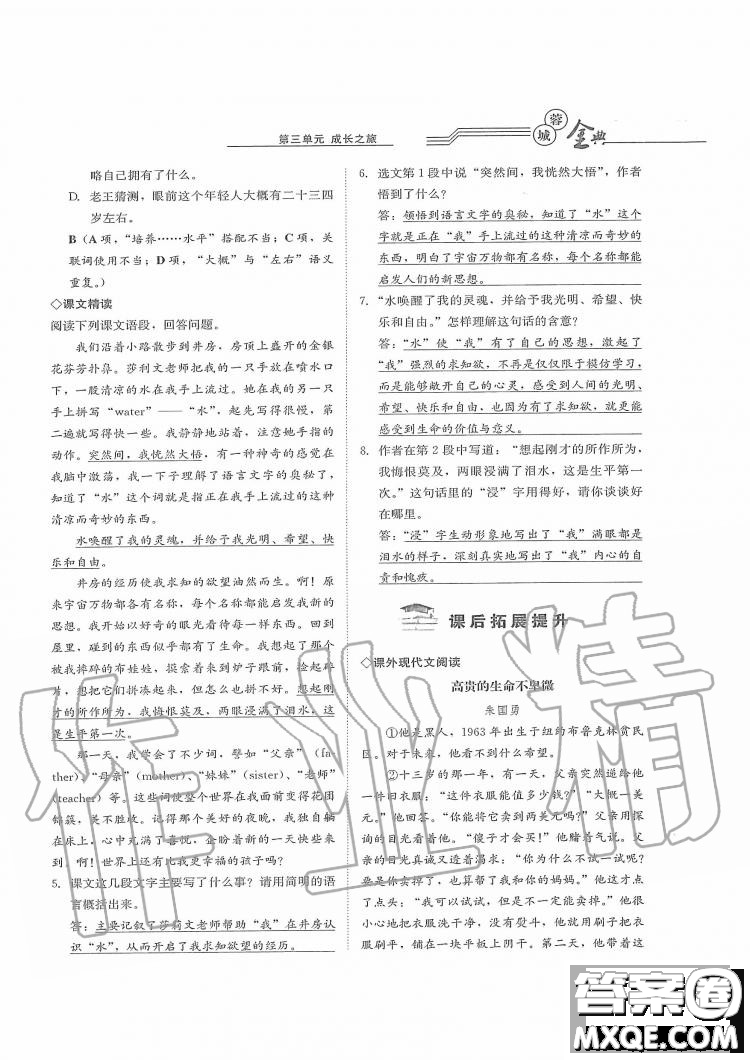 第三单元 成长之旅
蓉城金典
略自己拥有了什么。
D. 老王猜测，眼前这个年轻人大概有二十三四
岁左右。
B（A 项，“培养……水平”搭配不当；C 项，关
联词使用不当；D 项，“大概”与“左右”语义
重复。）
◇课文精读
阅读下列课文语段，回答问题。
我们沿着小路散步到井房，房顶上盛开的金银
花芬芳扑鼻。莎利文老师把我的一只手放在喷水口
下，一股清凉的水在我手上流过。她在我的另一只
手上拼写“water”——“水”，起先写得很慢，第
二遍就写得快一些。我静静地站着，注意她手指的
动作。突然间，我恍然大悟，有种神奇的感觉在我
脑中激荡，我一下子理解了语言文字的奥秘了，
知道了“水”这个词就是指正在我手上流过的这种
清凉而奇妙的东西。
水唤醒了我的灵魂，并给予我光明、希望、快
乐和自由。
井房的经历使我求知的欲望油然而生。啊！原
来宇宙万物都各有名称，每个名称都能启发我新的
思想。我开始以好奇的眼光看待每一样东西。回到
屋里，碰到的东西似乎都有了生命。我想起了那个
被我摔碎的布娃娃，摸索着来到炉子跟前，捡起碎
片，想把它们拼凑起来，但怎么也拼不好。想起刚
才的所作所为，我悔恨莫及，两眼浸满了泪水，这
是生平第一次。
那一天，我学会了不少词，譬如“父亲”（fa-
ther）、“母亲”（mother）、“妹妹”（sister）、“老师”
（teacher）等。这些词使整个世界在我面前变得花团
锦簇，美不胜收。记得那个美好的夜晚，我独自躺
在床上，心中充满了喜悦，企盼着新的一天快些来
到。啊！世界上还有比我更幸福的孩子吗？
5. 课文这几段文字主要写了什么事？请用简明的语
言概括出来。
答：主要记叙了莎莉文老师帮助“我”在井房认
识“水”，从而开启了我求知欲望的经历。
6. 选文第 1 段中说“突然间，我恍然大悟”，作者
悟到了什么？
答：领悟到语言文字的奥秘，知道了“水”这个
字就是正在“我”手上流过的这种清凉而奇妙的
东西，明白了宇宙万物都有名称，每个名称都能
启发人们的新思想。
7. “水唤醒了我的灵魂，并给予我光明、希望、快
乐和自由。”怎样理解这句话的含意？
答：“水”使“我”有了自己的思想，激起了
“我”强烈的求知欲，不再是仅仅限于模仿学习，
而是能够敞开自己的心灵，感受到人间的光明、
希望、快乐和自由，也因为有了求知欲，就更能
感受到生命的价值与意义。
8. 作者在第 2 段中写道：“想起刚才的所作所为，
我悔恨莫及，两眼浸满了泪水，这是生平第一
次。”这句话里的“浸”字用得好，请你谈谈好
在哪里。
答：“浸”字生动形象地写出了“我”满眼都是
泪水的样子，深刻真实地写出了“我”内心的自
责和愧疚。
课后拓展提升
◇课外现代文阅读
高贵的生命不卑微
朱国勇
①他是黑人，1963 年出生于纽约布鲁克林贫民
区。对于未来，他看不到什么希望。
②十三岁的那一年，有一天，父亲突然递给他
一件旧衣服：“这件衣服能值多少钱？”“大概一美
元。”他回答。“你能将它卖到两美元吗？”父亲用探
询的目光看着他。“傻子才会买！”他赌着气说。父
亲的目光真诚又透着渴求：“你为什么不试一试呢？
要是你卖掉了，也算帮了我和你的妈妈。”他这才
点点头：“我可以试试，但是不一定能卖掉。”他很
小心地把衣服洗干净，没有熨斗，他就用刷子把衣
服刷平，铺在一块平板上阴干。第二天，他带着这
作业精
答案圈
MXQE.COM